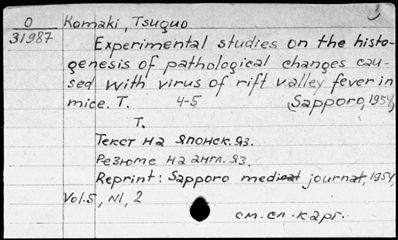 3
O Komaki, Tsuguo
31987
Experimental studies on the histo-
genesis of pathological changes cau-
sed with virus of rift valley fever in
mice. T. 4-5 (Sapporo, 1954,
T.
Текст на японск. яз.
Резюме на англ. яз.
Reprint: Sapporo medical journal, 1954,
Vol.5, N1, 2
см. сл. карт.